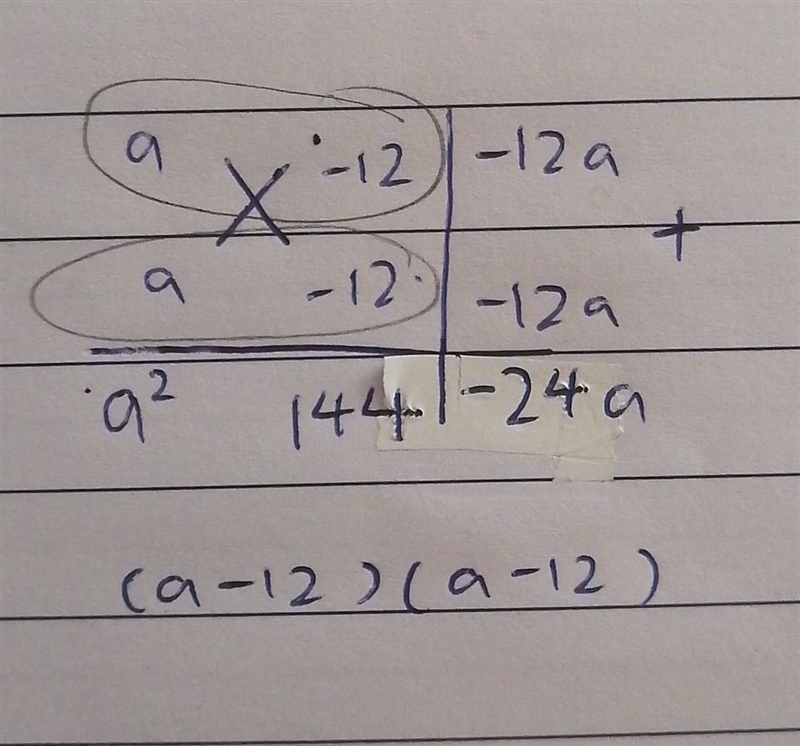 a -12 -12a
X +
a -12 -12a
a² 144 -24a
(a-12)(a-12)